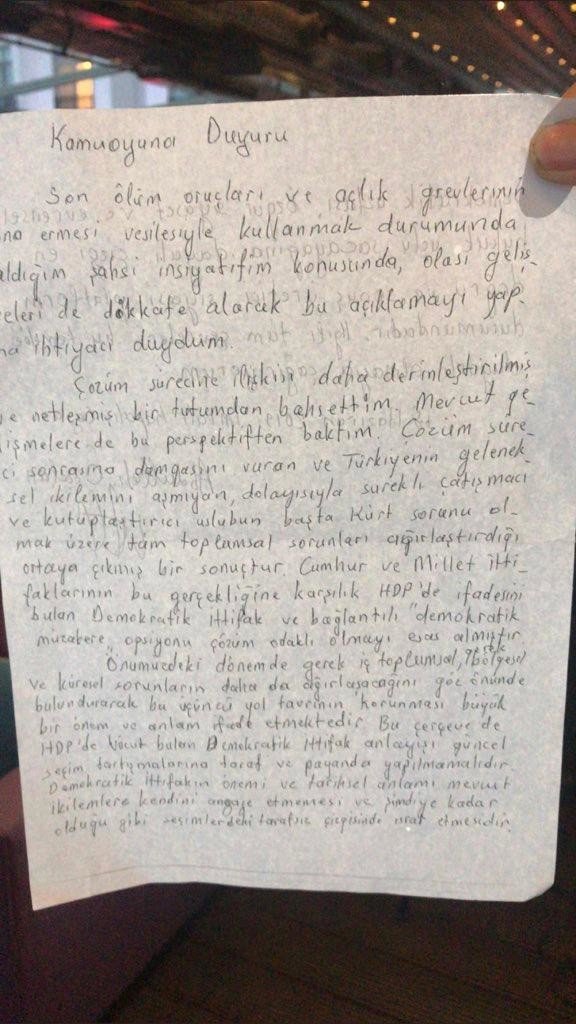 Kamuoyuna Duyuru
Son ölüm oruçları ve açlık grevlerinin
na ermesi vesilesiyle kullanmak durumunda
aldığım şahsi insiyatifim konusunda, olası geliş-
meleri de dikkate alarak bu açıklamayı yap-
ma ihtiyacı duydum.
Çözüm sürecine ilişkin daha derinleştirilmiş
ve netleşmiş bir tutumdan bahsettim. Mevcut ge-
lişmelere de bu perspektiften baktım. Çözüm süre-
ci sonrasına damgasını vuran ve Türkiyenin gelenek-
sel ikilemini aşmıyan, dolayısıyla sürekli çatışmacı
ve kutuplaştırıcı uslubun başta Kürt sorunu ol-
mak üzere tüm toplumsal sorunları ağırlaştırdığı
ortaya çıkmış bir sonuçtur. Cumhur ve Millet İtti-
faklarının bu gerçekliğine karşılık HDP'de ifadesini
bulan Demokratik İttifak ve bağlantılı "demokratik
müzakere" opsiyonu çözüm odaklı olmayı esas almıştır.
Önümüzdeki dönemde gerek iç toplumsal, gerek bölgesel
ve küresel sorunların daha da ağırlaşacağını göz önünde
bulundurarak bu üçüncü yol tavrının korunması büyük
bir önem ve anlam ifade etmektedir. Bu çerçeve de
HDP'de vücut bulan Demokratik İttifak anlayışı güncel
seçim tartışmalarına taraf ve payanda yapılmamalıdır.
Demokratik ittifakın önemi ve tarihsel anlamı mevcut
ikilemlere kendini angaje etmemesi ve şimdiye kadar
olduğu gibi seçimlerdeki tarafsız çizgisinde ısrar etmesidir.